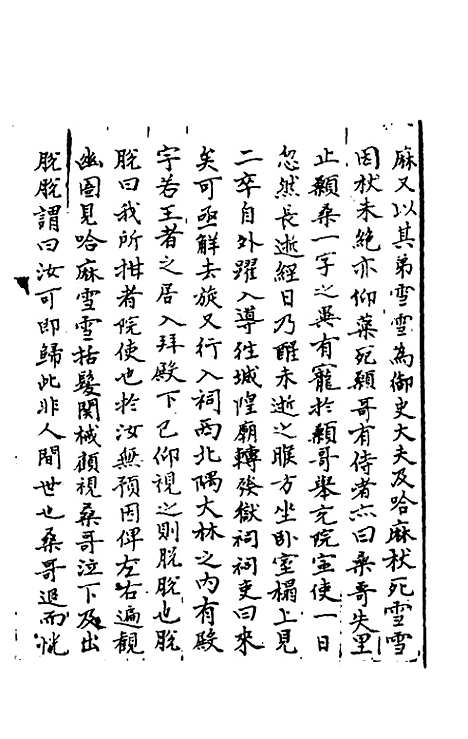 麻又以其弟雪雪為御史大夫及哈麻杖死雪雪
因杖未絶亦仰藥死顯哥有侍者亦曰桑哥失里
止顯桑一字之異有寵於顯哥舉充院宣使一日
忽然長逝經日乃醒未逝之睺方坐卧室榻上見
二卒自外躍入導往城隍廟轉發獄祠祠吏曰來
矣可亟觧去旋又行入祠西北隅大林之内有殿
宇若王者之居入拜殿下已仰視之則脱脱也脱
脱曰我所拑者院使也於汝無預因俾左右遍觀
幽圄見哈麻雪雪括髮関械顧視桑哥泣下及出
脱脱謂曰汝可即歸此非人間世也桑哥退而恍